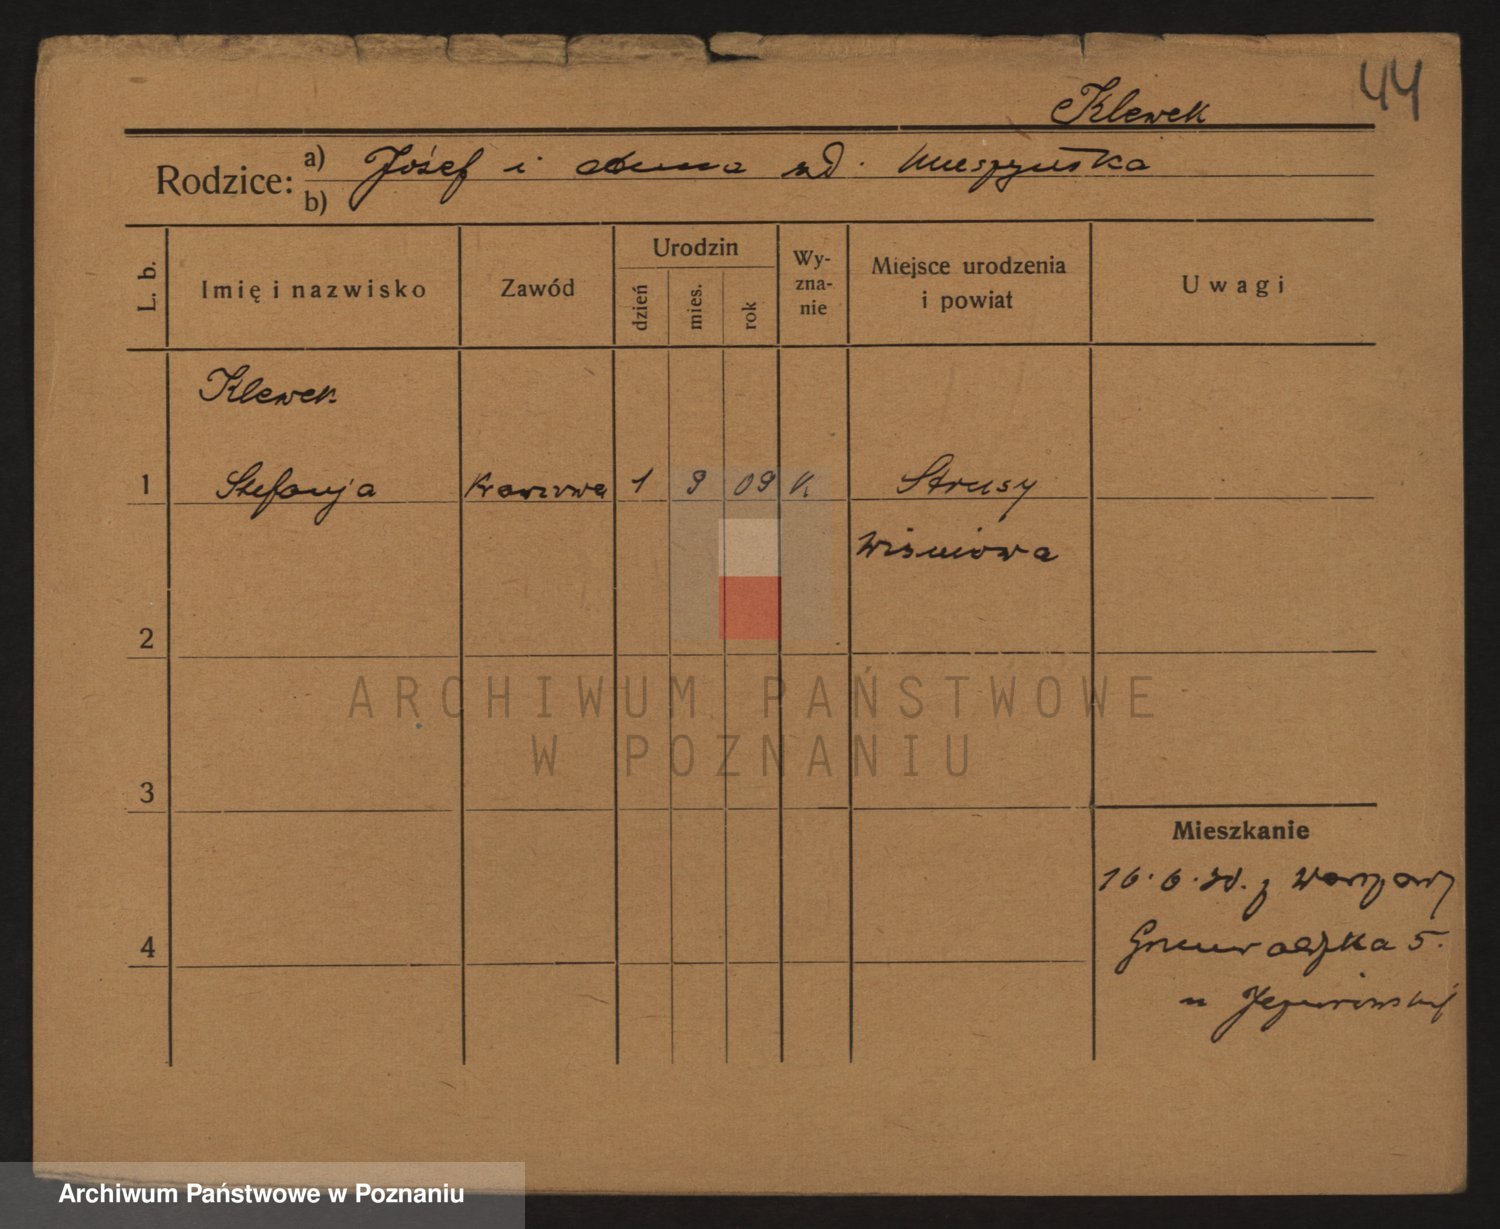 44
Klewek
Rodzice: a) Józef i Anna zd.
b)
L. b. Imię i nazwisko Zawód Urodzin dzień mies. rok Wy-zna-nie Miejsce urodzenia i powiat Uwagi
Klewek
1 Stefanja Krawcowa 1 9 09 K Strusy
Wiśniowa
2
ARCHIWUM PAŃSTWOWE
W POZNANIU
3
Mieszkanie
16. 6. 30. z Warszawy
4 Grunwaldzka 5.
u
Archiwum Państwowe w Poznaniu